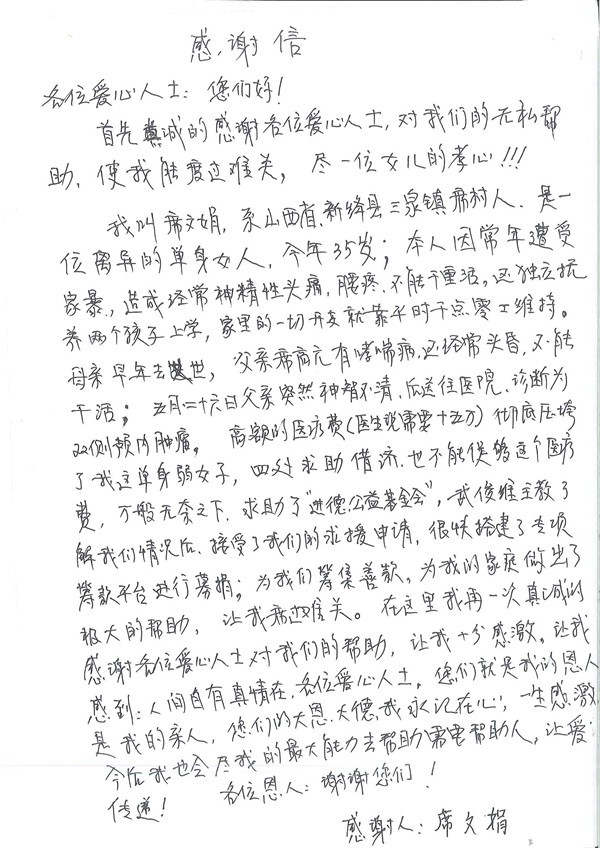 感谢信
各位爱心人士：您们好！
首先真诚的感谢各位爱心人士，对我们的无私帮
助，使我能度过难关，尽一位女儿的孝心!!!
我叫席文娟，系山西省新绛县三泉镇席村人，是一
位离异的单身女人，今年35岁；本人因常年遭受
家暴，造成经常神精性头痛，腰疼，不能干重活，还独立抚
养两个孩子上学，家里的一切开支就靠平时干点零工维持。
母亲早年去世，父亲席高元有哮喘病，还经常头昏，不能
干活；五月二十六日父亲突然神智不清，后送往医院，诊断为
双侧颅内肿瘤。高额的医疗费（医生说需要十五万）彻底压垮
了我这单身弱女子，四处求助借济，也不能使够这个医疗
费，万般无奈之下，求助了“进德公益基金会”，武俊维主教了
解我们情况后，接受了我们的求援申请，很快搭建了专项
筹款平台进行募捐；为我们筹集善款，为我的家庭做出了
极大的帮助，让我席难关。在这里我再一次真诚的
感谢各位爱心人士对我们的帮助，让我十分感激，让我
感到：人间自有真情在，各位爱心人士，您们就是我的恩人
是我的亲人，您们的大恩、大德，我永记在心，一生感激
今后我也会尽我的最大能力去帮助需要帮助人，让爱
传递！ 各位恩人：谢谢您们！
感谢人：席文娟